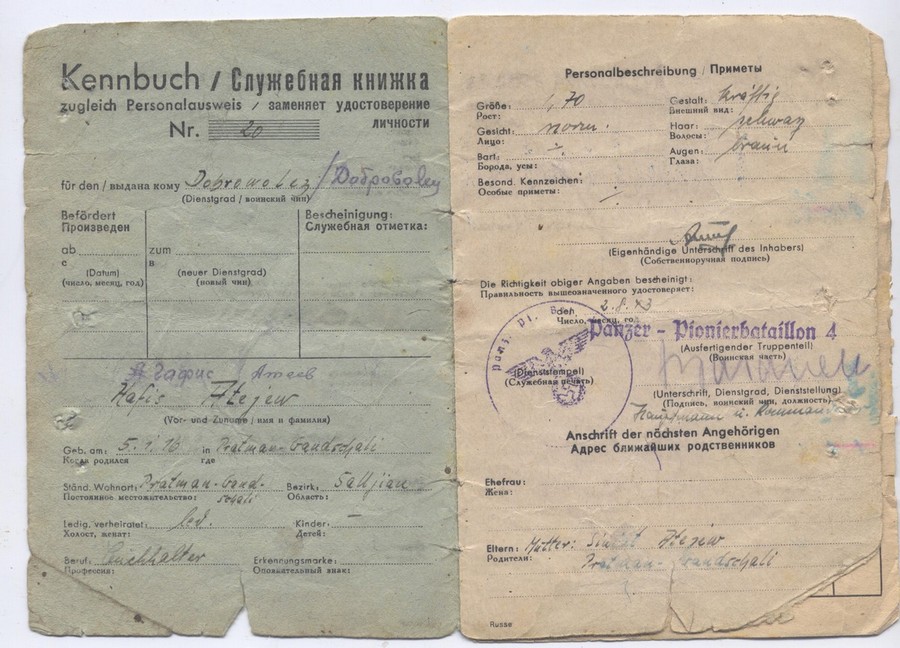 Kennbuch / Служебная книжка
zugleich Personalausweis / заменяет удостоверение
личности
Nr. 20
für den / выдана кому Dobrowolez / Доброволец
(Dienstgrad / воинский чин)
Befördert
Произведен
Bescheinigung:
Служебная отметка:
ab
с
zum
в
(Datum)
(число, месяц, год)
(neuer Dienstgrad)
(новый чин)
Гафис Атеев
Hafis Atejew
(Vor- und Zuname / имя и фамилия)
Geb. am: 5.1.16 in
Когда родился где
Ständ. Wohnort:
Постоянное местожительство:
Bezirk:
Область:
Ledig, verheiratet: led.
Холост, женат:
Kinder: —
Детей:
Beruf: Buchhalter
Профессия:
Erkennungsmarke:
Опознавательный знак:
Personalbeschreibung / Приметы
Größe: 1,70
Рост:
Gestalt: kräftig
Внешний вид:
Gesicht: norm.
Лицо:
Haar: schwarz
Волосы:
Bart:
Борода, усы:
Augen: braun
Глаза:
Besond. Kennzeichen:
Особые приметы:
(Eigenhändige Unterschrift des Inhabers)
(Собственноручная подпись)
Die Richtigkeit obiger Angaben bescheinigt:
Правильность вышеозначенного удостоверяет:
den 2.8.43
Число, месяц, год
Panzer - Pionierbataillon 4
(Ausfertigender Truppenteil)
(Воинская часть)
(Dienststempel)
(Служебная печать)
(Unterschrift, Dienstgrad, Dienststellung)
(Подпись, воинский чин, должность)
Hauptmann u.
Anschrift der nächsten Angehörigen
Адрес ближайших родственников
Ehefrau:
Жена:
Eltern: Mutter: Atejew
Родители:
Russe